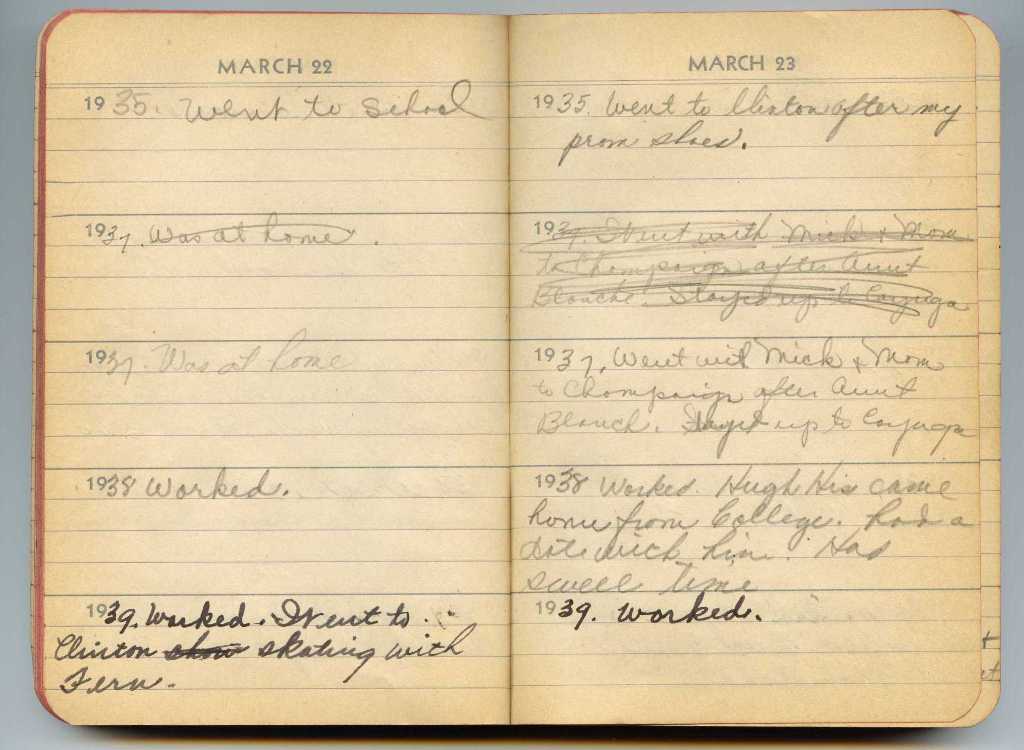 MARCH 22
1935. Went to School
1937. Was at home.
1937. Was at home
1938 Worked.
1939. Worked. Went to
Clinton show skating with
Fern.
MARCH 23
1935. Went to Clinton after my
prom shoes.
1937. Went with Mick & Mom
to Champaign after Aunt
Blanche. Stayed up to Cayuga
1937. Went with Mick & Mom
to Champaign after Aunt
Blanch. Stayed up to Cayuga
1938 Worked. Hugh Hix came
home from College. had a
date with him. Had
swell time
1939. Worked.